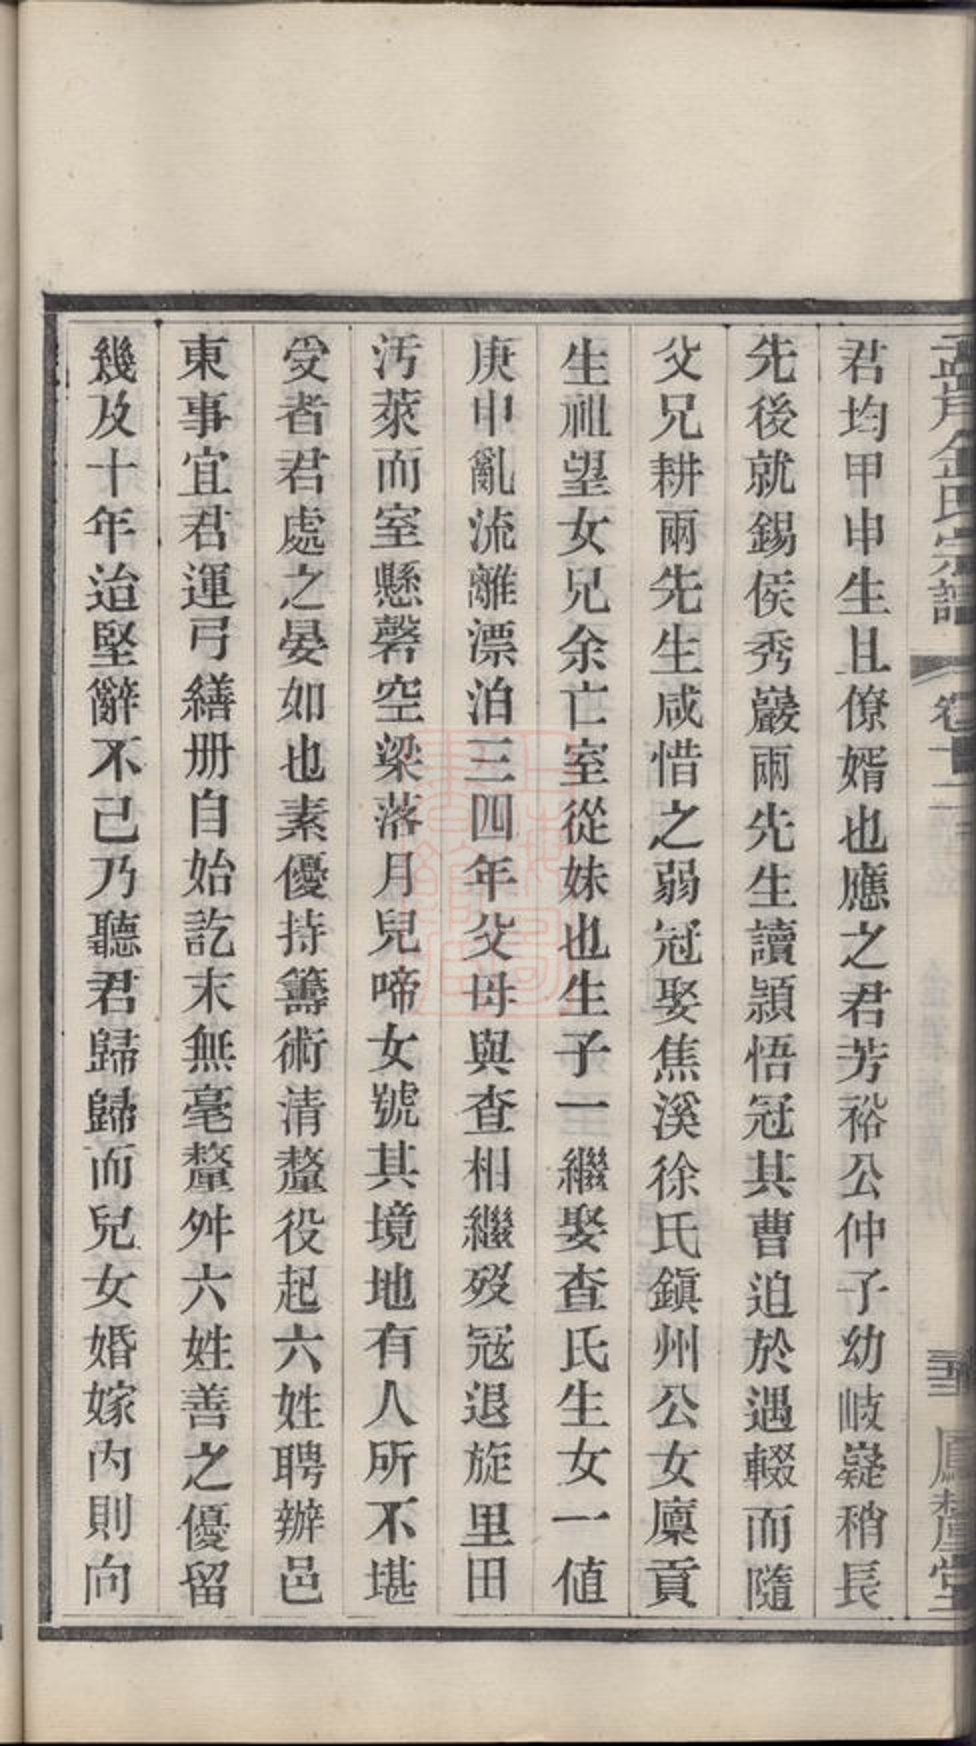 孟岸金氏宗譜 卷十二 三十三 鳳巢堂
君均甲申生且僚婿也應之君芳裕公仲子幼岐嶷稍長
先後就錫侯秀巖兩先生讀穎悟冠其曹迫於遇輟而隨
父兄耕兩先生咸惜之弱冠娶焦溪徐氏鎭州公女廩貢
生祖望女兄余亡室從妹也生子一繼娶查氏生女一値
庚申亂流離漂泊三四年父母與查相繼歿冦退旋里田
汚萊而室懸磬空梁落月兒啼女號其境地有人所不堪
受者君處之晏如也素優持籌術清釐役起六姓聘辦邑
東事宜君運弓繕册自始訖末無毫釐舛六姓善之優留
幾及十年迨堅辭不已乃聽君歸歸而兒女婚嫁內則向